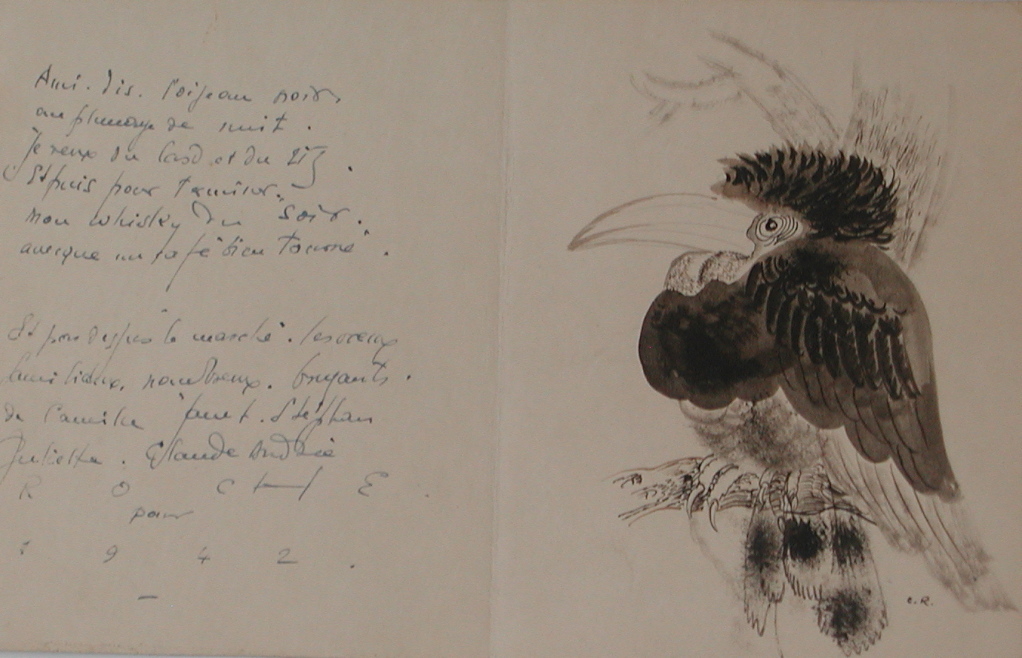 Ami. dis. l'oiseau noir,
au plumage de nuit.
"Je veux du lard et du riz.
Et puis pour terminer,
mon whisky du soir.
avecque un café bien tourné".
Et par dessus le marché. les vœux
familiaux, nombreux. bruyants.
de l'amitié Janet. Stéphan
Juliette. Claude Andrée
R O C H E.
pour
1 9 4 2.
C.R.